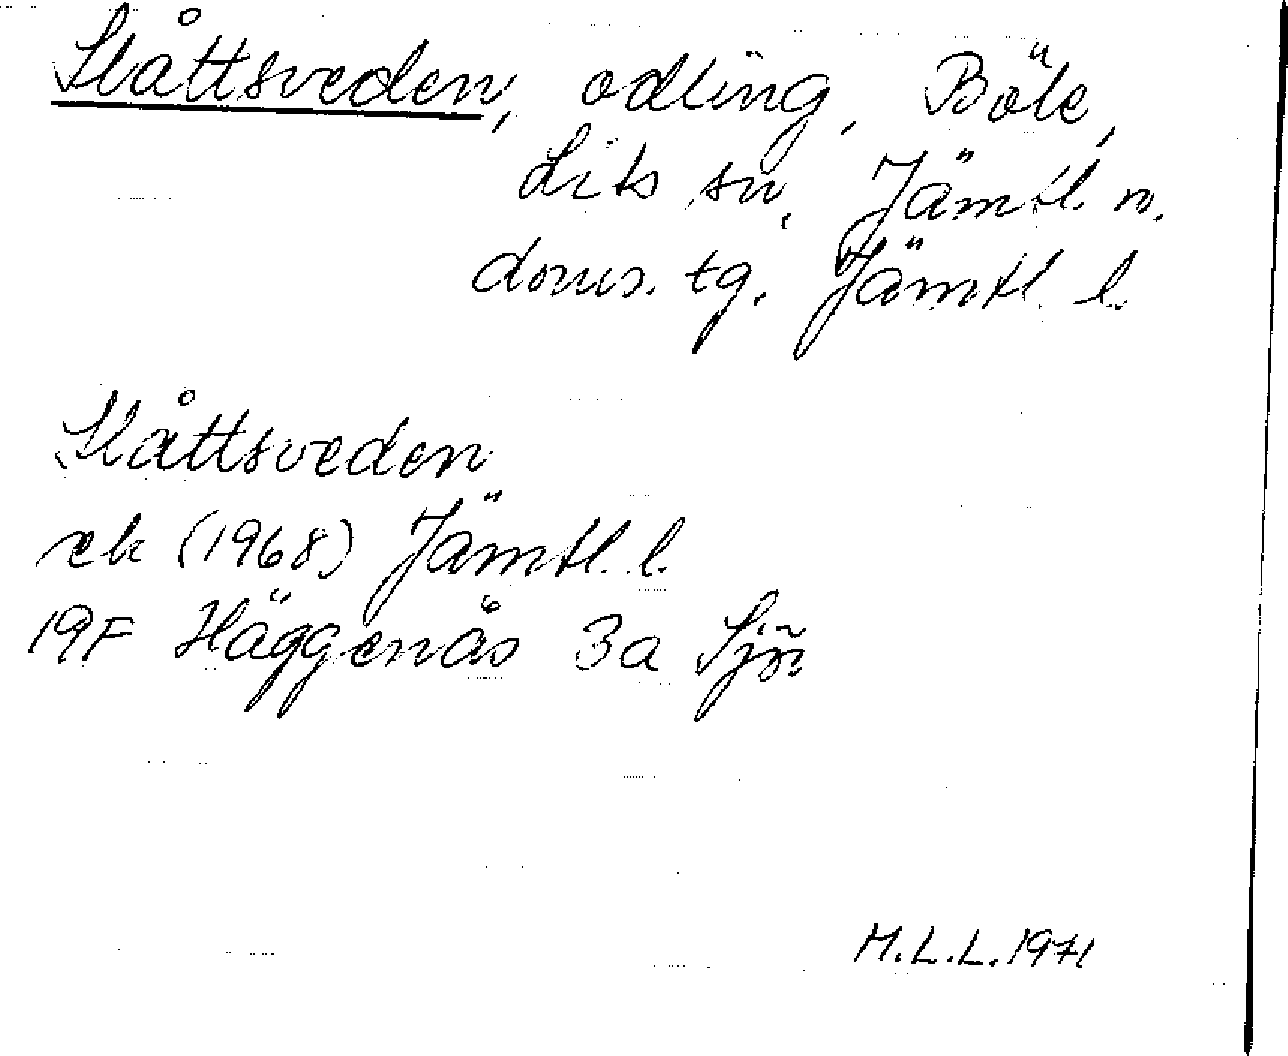 Slåttsveden, odling, Böle,
Lits sn, Jämtl. n.
doms. tg. Jämtl. l.
Slåttsveden
ek (1968) Jämtl. l.
19F Häggenås 3a Sjör
M.L.L. 1971